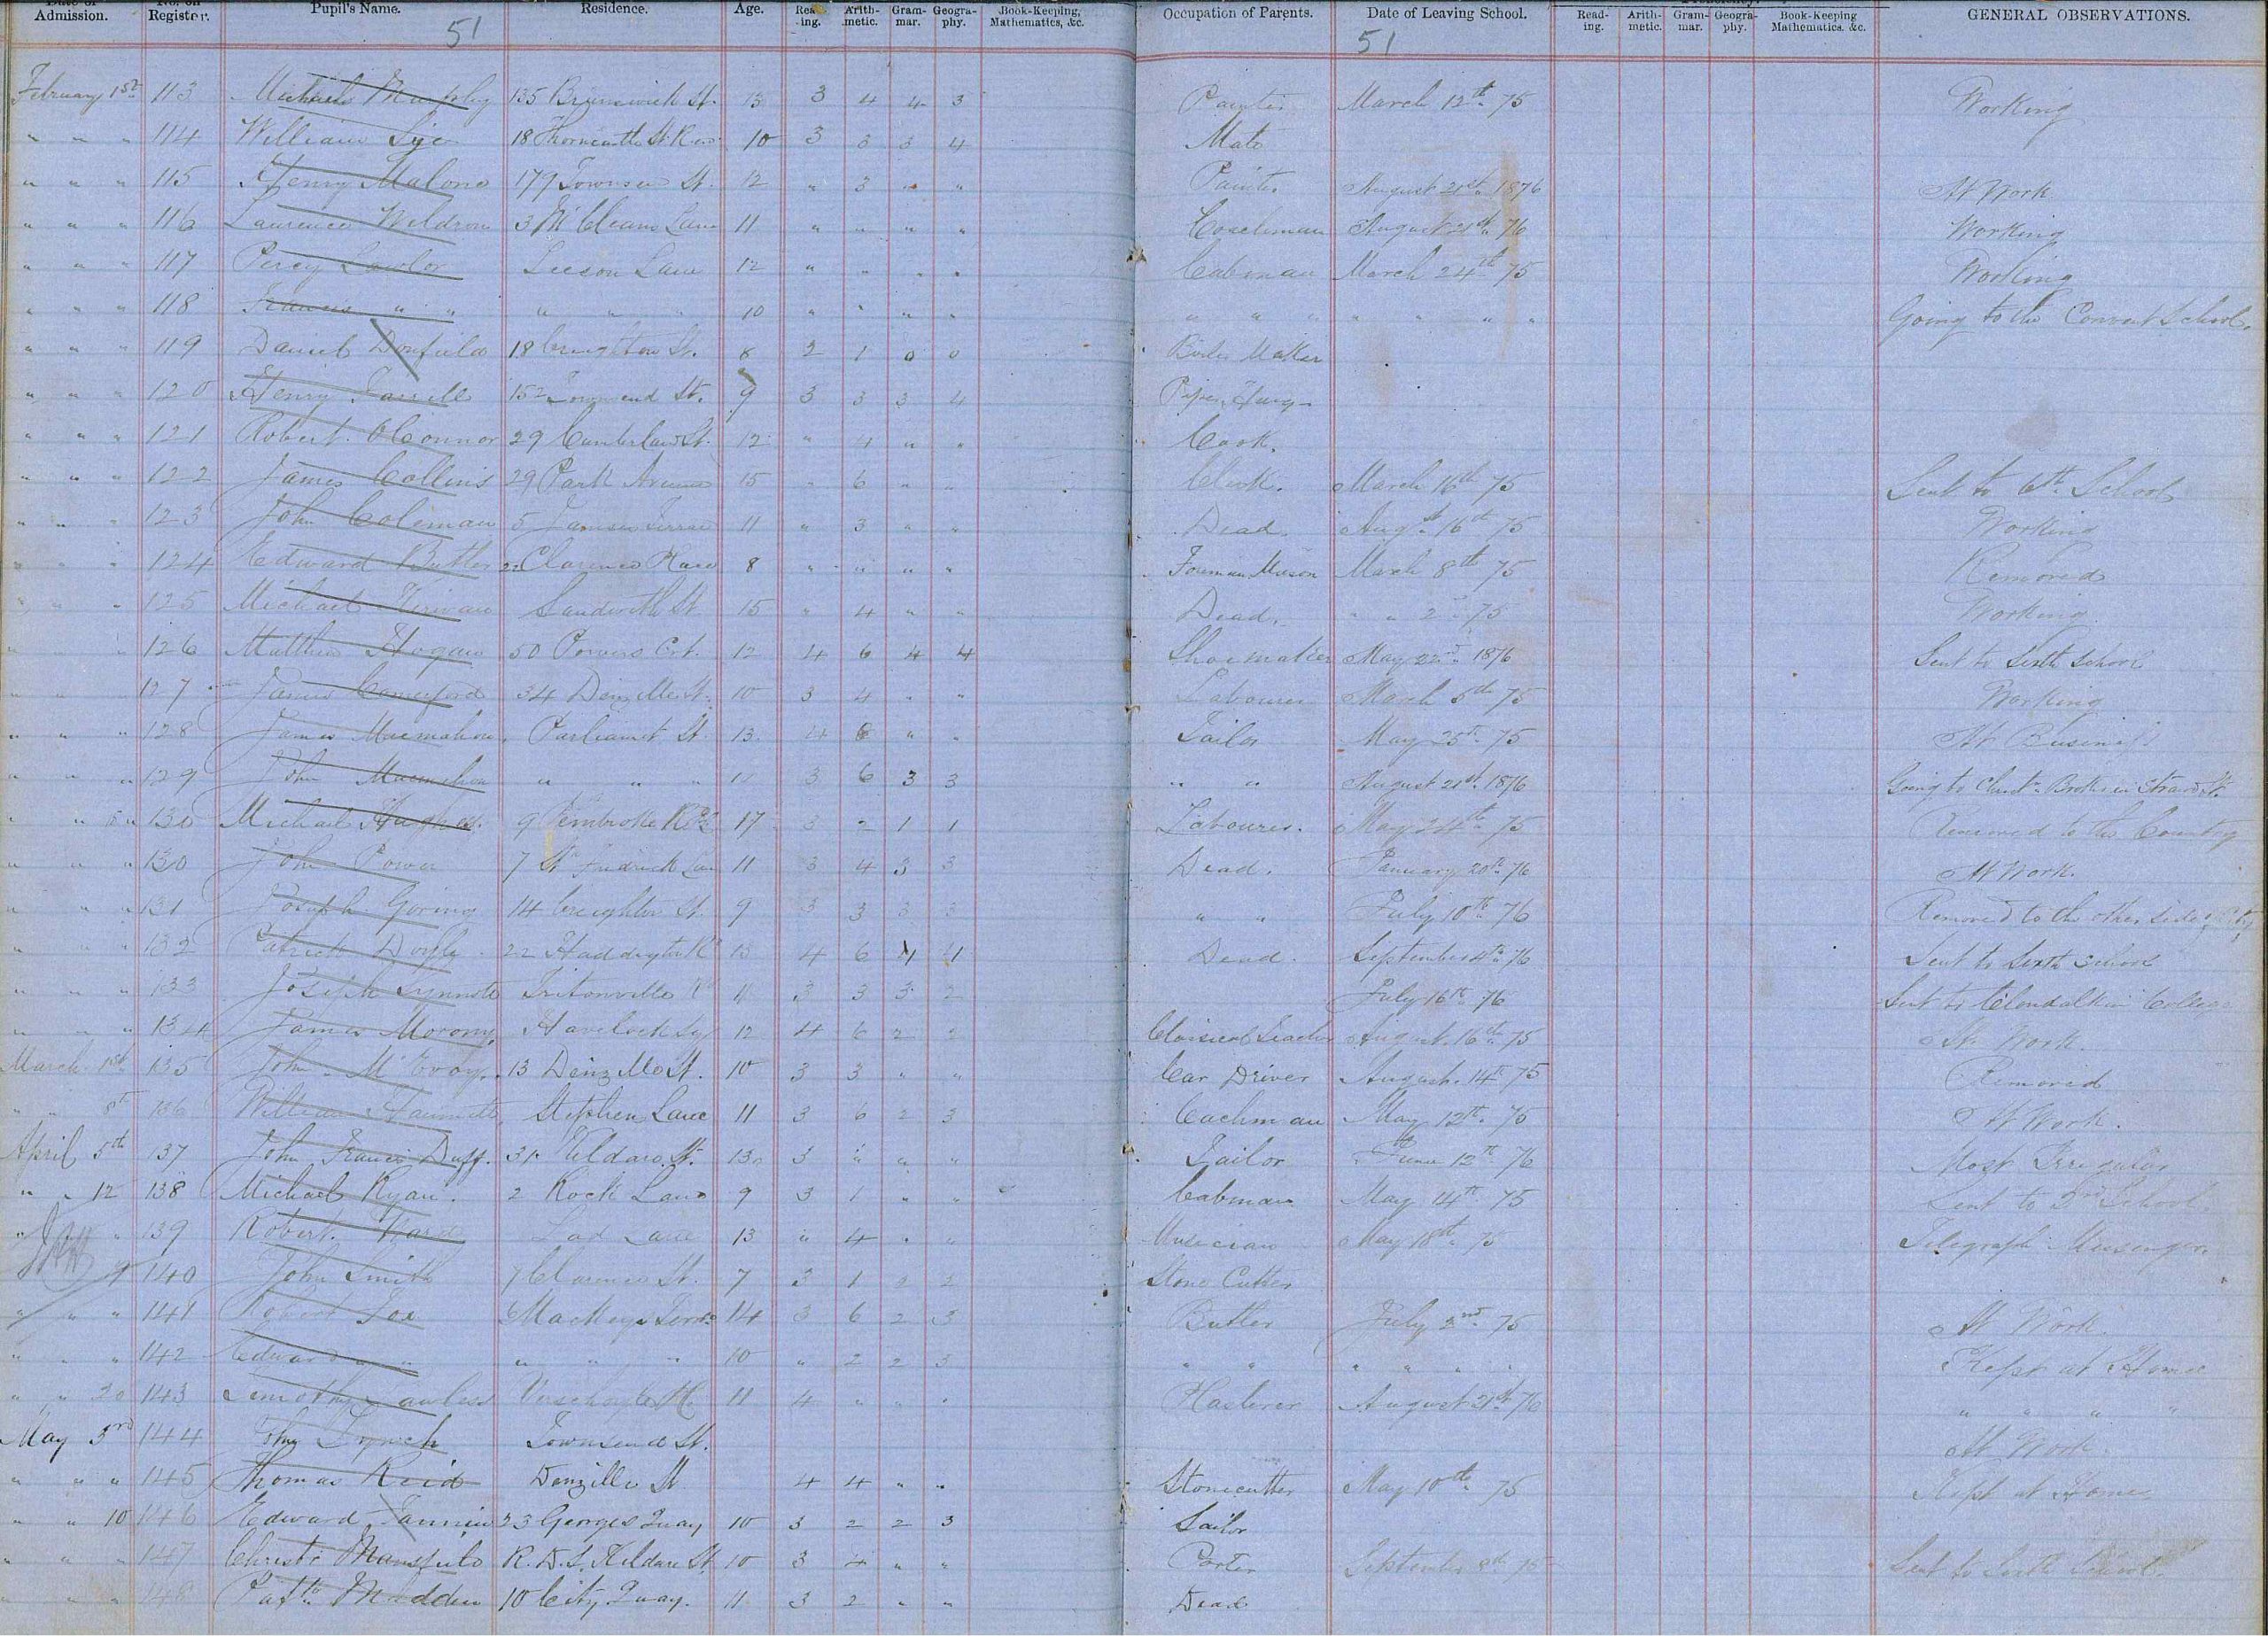 Admission. Register. Pupil's Name. Residence. Age. Read-ing. Arith-metic. Gram-mar. Geogra-phy. Book-Keeping, Mathematics, &c. Occupation of Parents. Date of Leaving School. Read-ing. Arith-metic. Gram-mar. Geogra-phy. Book-Keeping Mathematics. &c. GENERAL OBSERVATIONS.
51 51
February 1st 113 Michael Murphy 135 Brunswick St. 13 3 4 4 3 Painter March 12th 75 Working
" " " 114 William 18 10 3 3 3 4
" " " 115 Henry Malone 179 Townsend St. 12 " 3 " " Painter August 21st 1876 At Work
" " " 116 Laurence 3 Lane 11 " " " " Coachman August 21st 76 Working
" " " 117 Percy Lawlor Leeson Lane 12 " " " " Cabman March 24th 75 Working
" " " 118 Francis " " " " " 10 " " " " " " " " " " " Going to the Convent School.
" " " 119 Daniel 18 Creighton St. 8 2 1 0 0 Boiler Maker
" " " 120 Henry Farrell 152 Townsend St. 9 3 3 3 4
" " " 121 Robert O'Connor 29 Cumberland St. 12 " 4 " " Cook.
" " " 122 James Collins 29 Park Avenue 15 " 6 " " Clerk. March 16th 75 Sent to 6th School
" " " 123 John Coleman 5 11 " 3 " " Dead. Augst 16th 75 Working
" " " 124 Edward Butler 2 Clarence Place 8 " " " " Foreman Mason March 8th 75 Removed
" " " 125 Michael Sandwith St 15 " 4 " " Dead. " " 2nd 75 Working.
126 Matthew Hogan 50 Powers Crt. 12 4 6 4 4 Shoemaker May 22nd 1876 Sent to Sixth School
127 James Comerford 34 Denzille St. 10 3 4 " " Labourer March 5th 75 Working
" " " 128 James Macmahon Parliament St. 13 4 6 " " Tailor May 25th 75 At Business
" " " 129 John Macmahon " " " 11 3 6 3 3 " " August 21st 1876 Going to Christn. Brothers in Strand St.
" " 130 Michael Hughes. 9 Pembroke 17 3 2 1 1 Labourer. May 24th 75 Removed to the Country
" " " 130 John Power 7 St Fredrick Lane 11 3 4 3 3 Dead. January 20th 76 At Work.
" " " 131 Joseph Goring 14 Creighton St. 9 3 3 3 3 " " July 10th 76 Removed to the other side of City
" " " 132 Patrick Doyle 22 Haddington Rd 13 4 6 4 4 Dead. September 4th 76 Sent to Sixth School
" " " 133 Joseph Synnott Tritonville Rd 11 3 3 3 2 July 16th 76 Sent to Clondalkin College
" " " 134 James Morony Havelock Sq 12 4 6 2 2 Classical Teacher August 16th 75 At Work.
March 1st 135 John M'Evoy. 13 Denzille St. 10 3 3 " " Car Driver August. 14th 75 Removed
" " 8th 136 William Stephen Lane 11 3 6 2 3 Coachman May 12th 75 At Work.
April 5th 137 John Francis Duff. 31 Kildare St. 13 3 " " " Tailor June 12th 76 Most Irregular
" " 12 138 Michael Ryan. 2 Rock Lane 9 3 1 " " Cabman May 14th 75 Sent to 3rd School.
" " 139 Robert. Ward Lad Lane 13 " 4 " " Musician May 18th 75 Telegraph Messenger.
140 John Smith 7 Clarence St. 7 3 1 2 2 Stone Cutter
" " " 141 Robert Fox 6 Mackeys Terrace 14 3 6 2 3 Butler July 2nd 75 At Work.
" " " 142 Edward " " " " 10 " 2 2 3 " " " " " " Kept at Home
" " 20 143 Timothy Lawless Verschoyle Pl. 11 4 " " " Plasterer August 21st 76 " " " "
May 3rd 144 Lynch Townsend St. At Work.
" " " 145 Thomas Reid Denzille St 4 4 " " Stonecutter May 10th 75 Kept at Home
" " 10 146 Edward Fannin 33 Georges Quay 10 3 2 2 3 Sailor
" " " 147 Christr. Mansfield R.D.S. Kildare St. 10 3 4 " " Porter September 8th 75 Sent to Sixth School.
" " " 148 Patk. Madden 10 City Quay. 11 3 2 " " Dead